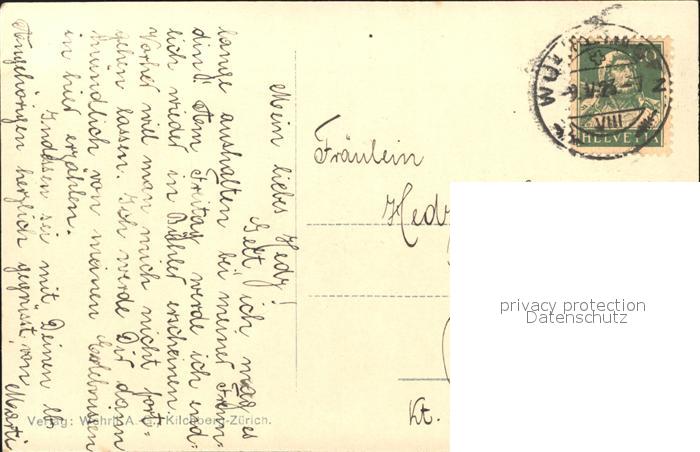 Mein liebes Hedy!
Gelt, ich mag es
lange aushalten bei meiner Freun-
din! Am Freitag werde ich end-
lich wieder in Bühler erscheinen.
Vorher will man mich nicht fort-
gehen lassen. Ich werde Dir dann
mündlich von meinen Erlebnissen
in hier erzählen.
Indessen sei mit Deinen lb.
Angehörigen herzlich gegrüsst von
Marti
Fräulein
Hedy
Kt.
HELVETIA
VIII
Verlag: Wehrli A.-G., Kilchberg-Zürich.
privacy protection
Datenschutz